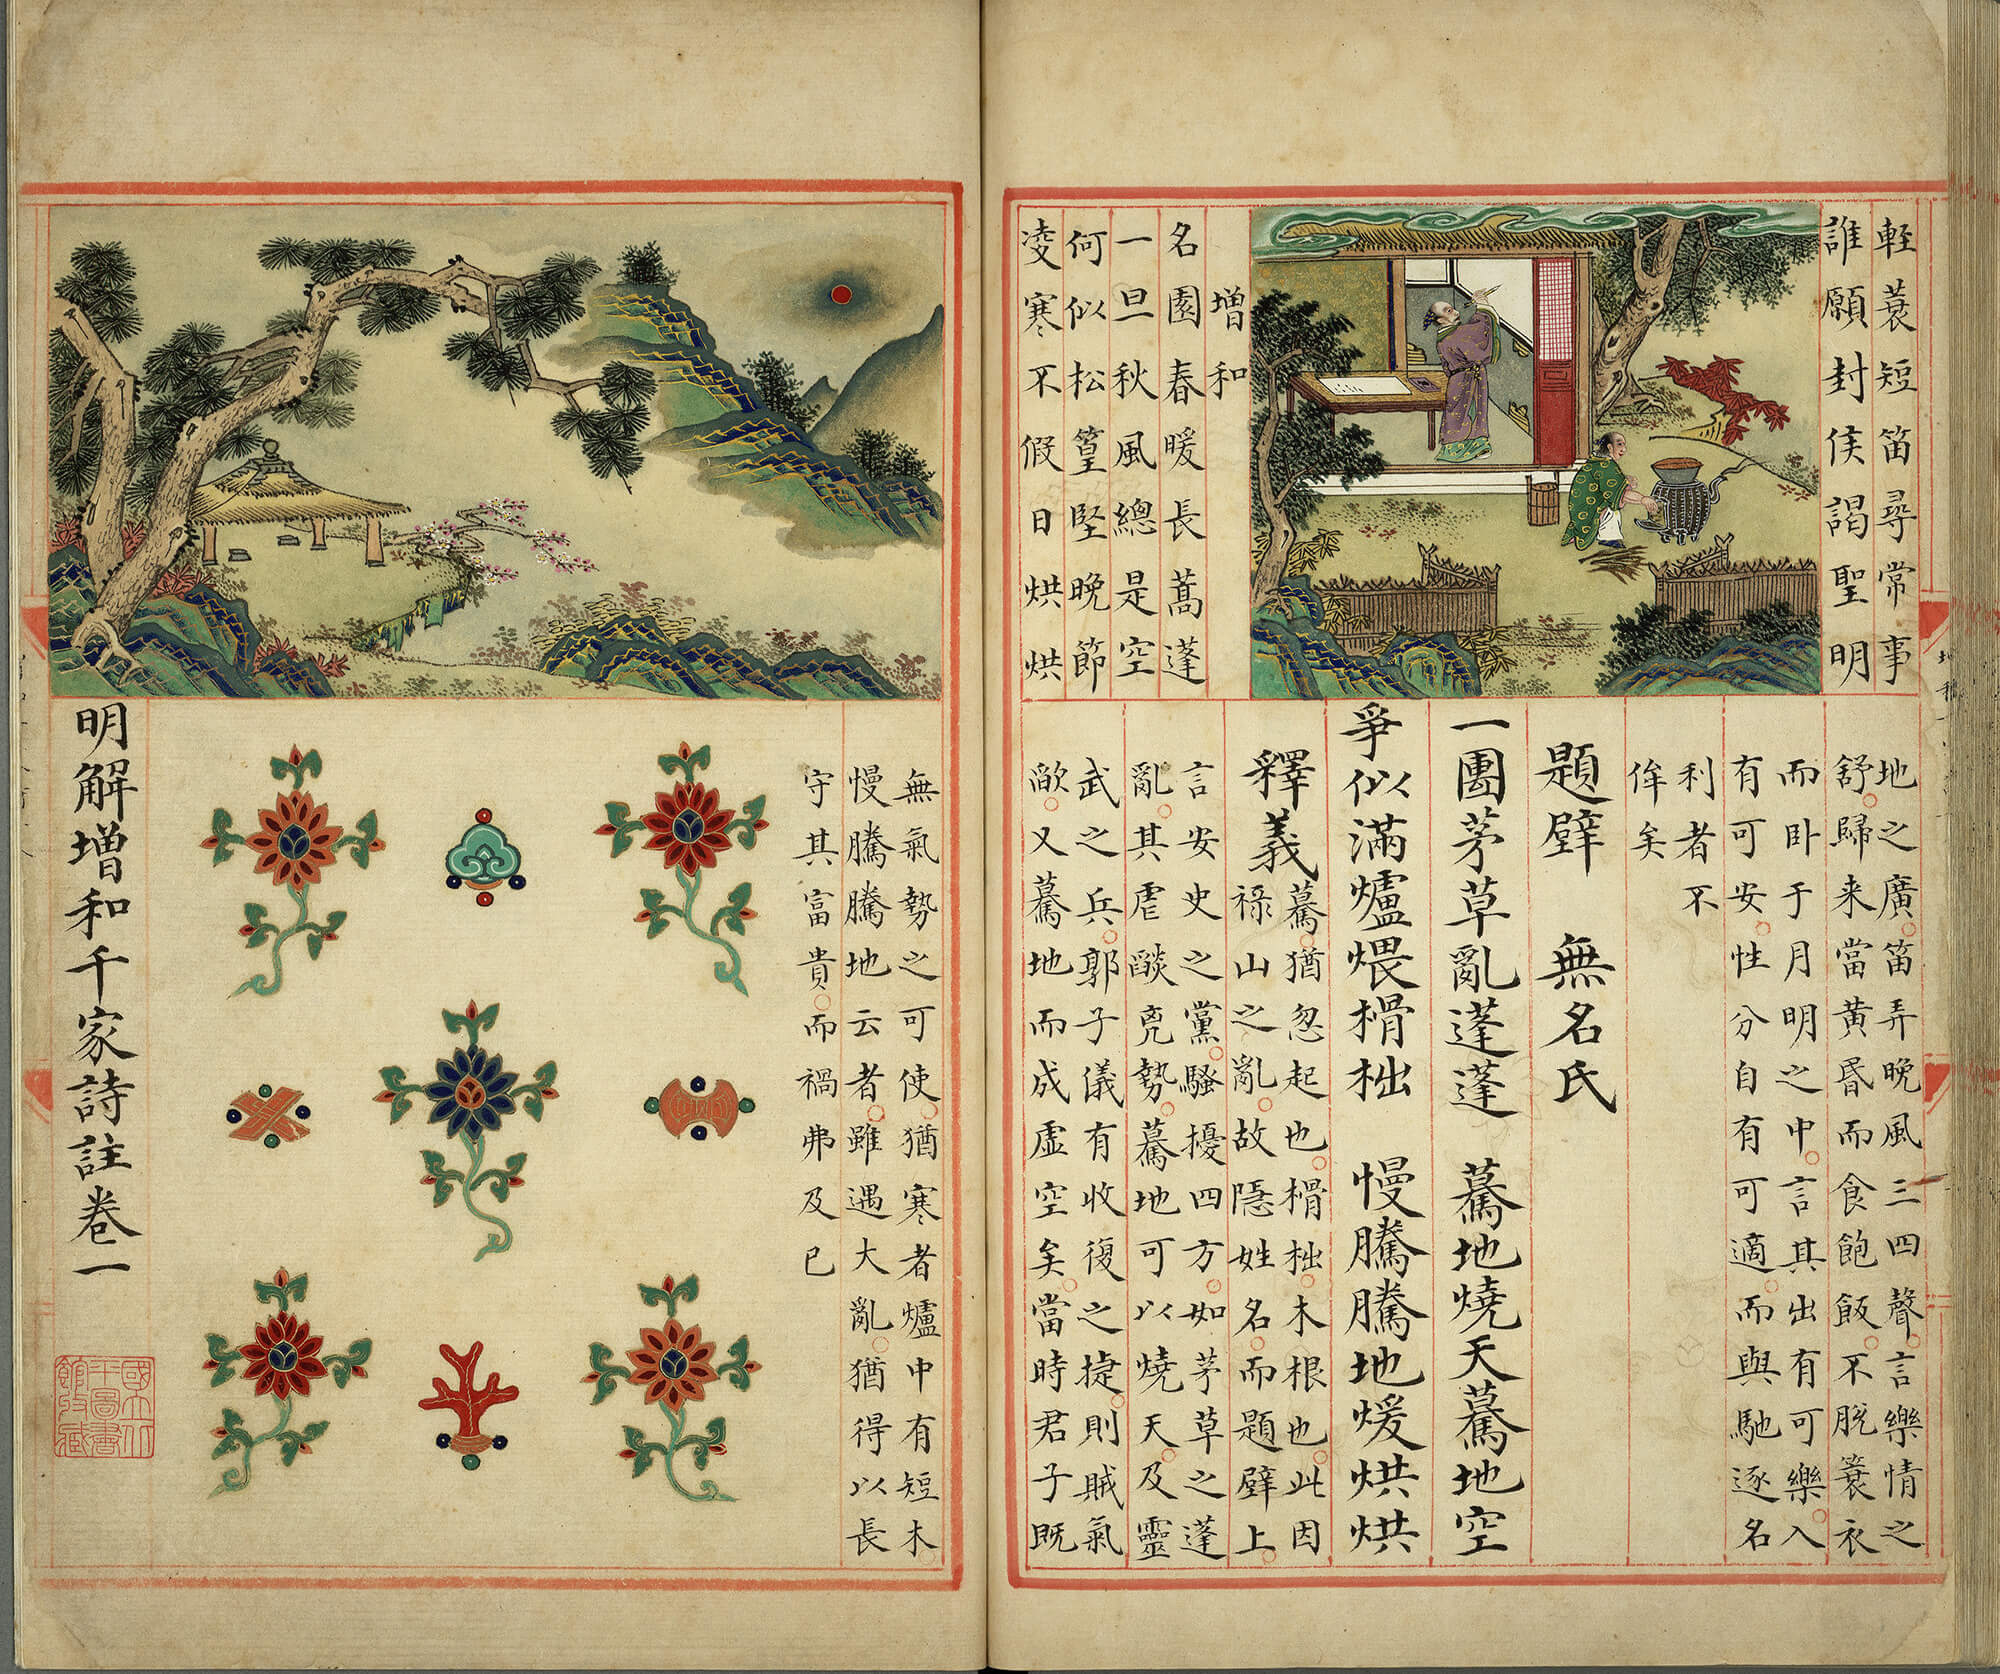 軽蓑短笛尋常事
誰願封侯謁聖明
増和
名園春暖長蒿蓬
一旦秋風總是空
何似松篁堅晩節
凌寒不假日烘烘
地之廣笛弄晩風三四聲言樂情之
舒歸来當黄昬而食飽飯不脱蓑衣
而卧于月明之中言其出有可樂入
有可安性分自有可適而與馳逐名
利者不
侔矣
題壁 無名氏
一團茅草亂蓬蓬 驀地燒天驀地空
爭似滿爐煨榾柮 慢騰騰地煖烘烘
釋義
驀猶忽起也榾柮木根也此因
祿山之亂故隱姓名而題壁上
言安史之黨騷擾四方如茅草之蓬
亂其虐燄兇勢驀地可以燒天及靈
武之兵郭子儀有收復之捷則賊氣
歊又驀地而成虚空矣當時君子既
無氣勢之可使猶寒者爐中有短木
慢騰騰地云者雖遇大亂猶得以長
守其富貴而禍弗及已
明解増和千家詩註卷一
國立北
平圖書
館收藏